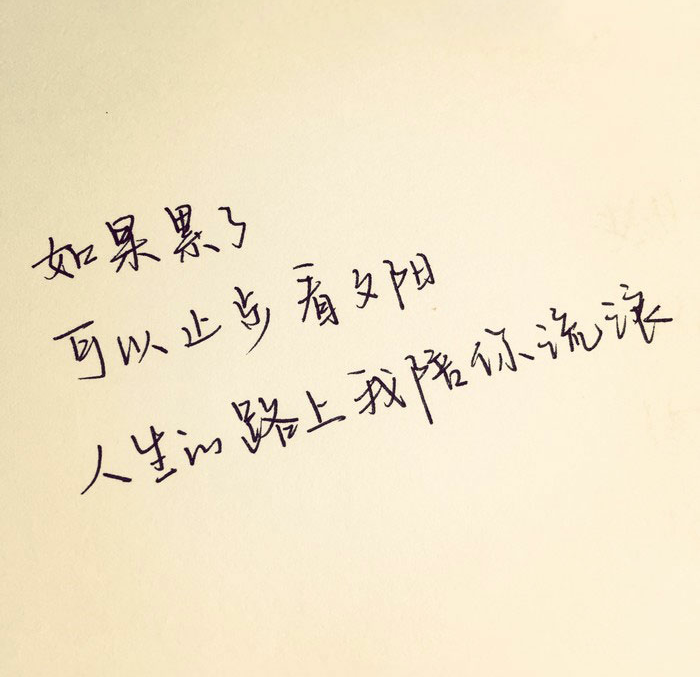 如果累了
可以止步看夕阳
人生的路上我陪你流浪